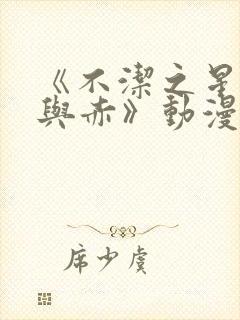 《不潔之星
與赤》動漫
席少虞